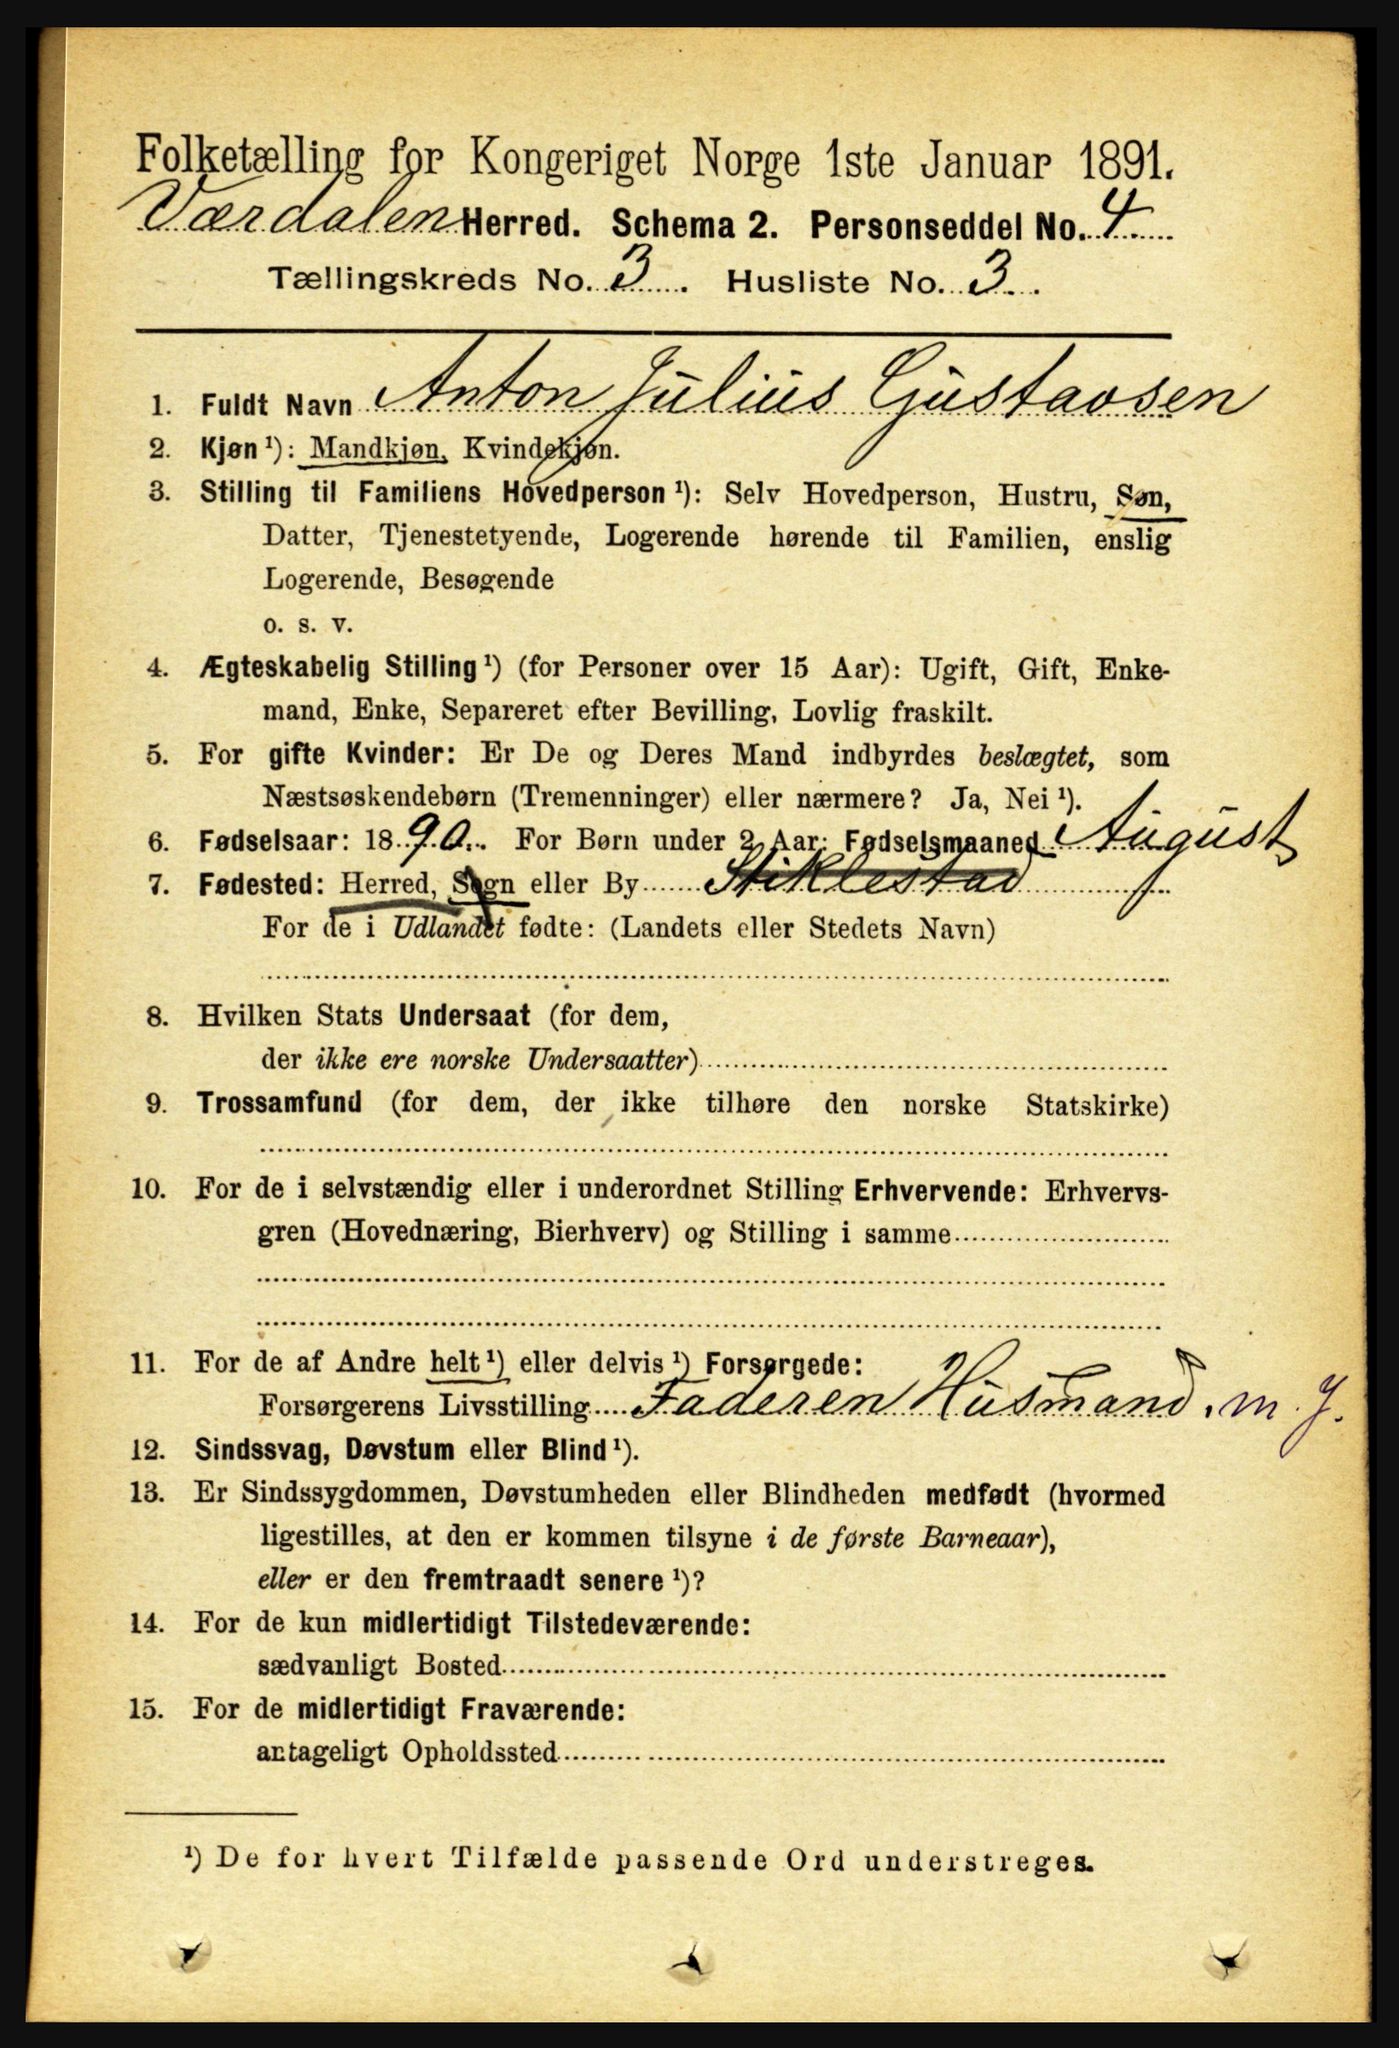 Folketælling for Kongeriget Norge 1ste Januar 1891.
Værdalen Herred. Schema 2. Personseddel No. 4
Tællingskreds No. 3. Husliste No. 3.
1. Fuldt Navn Anton Julius Gustavsen
2. Kjøn¹): Mandkjøn, Kvindekjøn.
3. Stilling til Familiens Hovedperson¹): Selv Hovedperson, Hustru, Søn,
Datter, Tjenestetyende, Logerende hørende til Familien, enslig
Logerende, Besøgende
o. s. v.
4. Ægteskabelig Stilling¹) (for Personer over 15 Aar): Ugift, Gift, Enke-
mand, Enke, Separeret efter Bevilling, Lovlig fraskilt.
5. For gifte Kvinder: Er De og Deres Mand indbyrdes beslægtet, som
Næstsøskendebørn (Tremenninger) eller nærmere? Ja, Nei¹).
6. Fødselsaar: 1890. For Børn under 2 Aar: Fødselsmaaned August
7. Fødested: Herred, Sogn eller By Stiklestad
For de i Udlandet fødte: (Landets eller Stedets Navn)
8. Hvilken Stats Undersaat (for dem,
der ikke ere norske Undersaatter)
9. Trossamfund (for dem, der ikke tilhøre den norske Statskirke)
10. For de i selvstændig eller i underordnet Stilling Erhvervende: Erhvervs-
gren (Hovednæring, Bierhverv) og Stilling i samme
11. For de af Andre helt¹) eller delvis¹) Forsørgede:
Forsørgerens Livsstilling Faderen Husmand. m. J.
12. Sindssvag, Døvstum eller Blind¹).
13. Er Sindssygdommen, Døvstumheden eller Blindheden medfødt (hvormed
ligestilles, at den er kommen tilsyne i de første Barneaar),
eller er den fremtraadt senere¹)?
14. For de kun midlertidigt Tilstedeværende:
sædvanligt Bosted
15. For de midlertidigt Fraværende:
antageligt Opholdssted
¹) De for hvert Tilfælde passende Ord understreges.